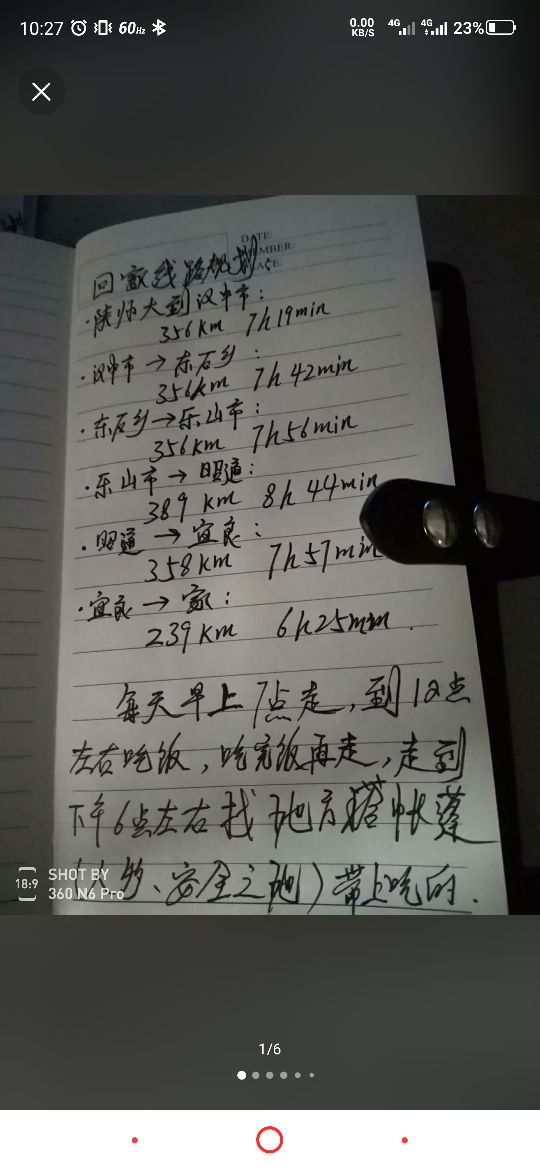 10:27 60Hz 0.00 KB/S 4G 4G 23%
DATE:
MEMBER:
ACE:
回家线路规划:
·陕师大到汉中市:
356km 7h19min
·汉中市→东石乡:
356km 7h42min
·东石乡→乐山市:
356km 7h56min
·乐山市→昭通:
389km 8h44min
·昭通→宜良:
358km 7h57min
·宜良→家:
239km 6h25min.
每天早上7点走,到12点
左右吃饭,吃完饭再走,走到
下午6点左右找地方搭帐蓬
、安全之地)带上吃的.
18:9 SHOT BY
360 N6 Pro
1/6